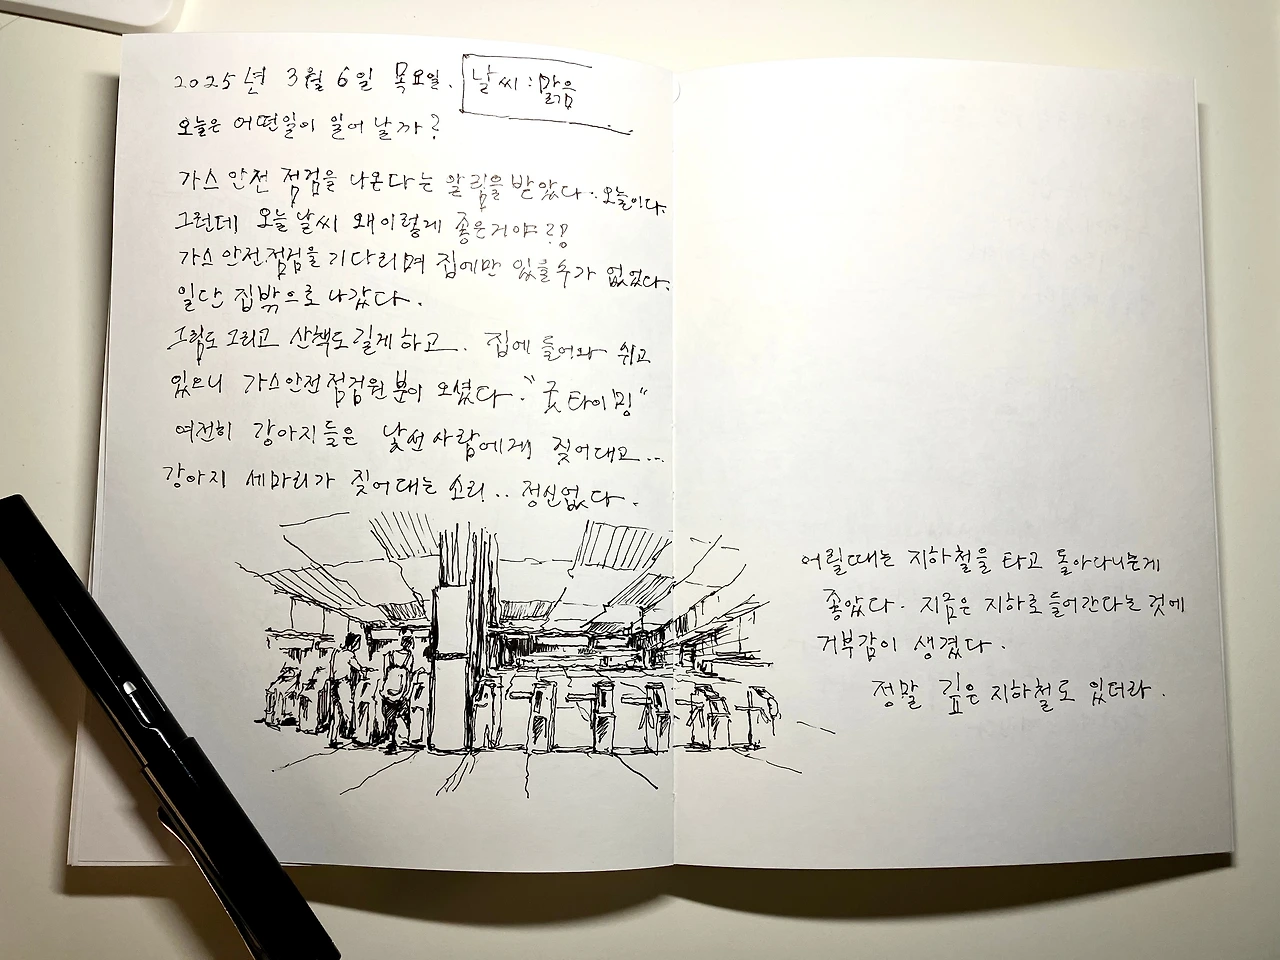 2025년 3월 6일 목요일. 날씨 : 맑음
오늘은 어떤일이 일어 날까?
가스 안전 점검을 나온다는 알림을 받았다.. 오늘이다.
그런데 오늘 날씨 왜이렇게 좋은거야?!
가스 안전점검을 기다리며 집에만 있을수가 없었다.
일단 집밖으로 나갔다.
그림도 그리고 산책도 길게 하고. 집에 들어와 쉬고
있으니 가스안전점검원 분이 오셨다. "굿타이밍"
여전히 강아지들은 낯선사람에게 짖어대고...
강아지 세마리가 짖어대는 소리.. 정신없다.
어릴때는 지하철을 타고 돌아다니는게
좋았다. 지금은 지하로 들어간다는 것에
거부감이 생겼다.
정말 깊은 지하철도 있더라.